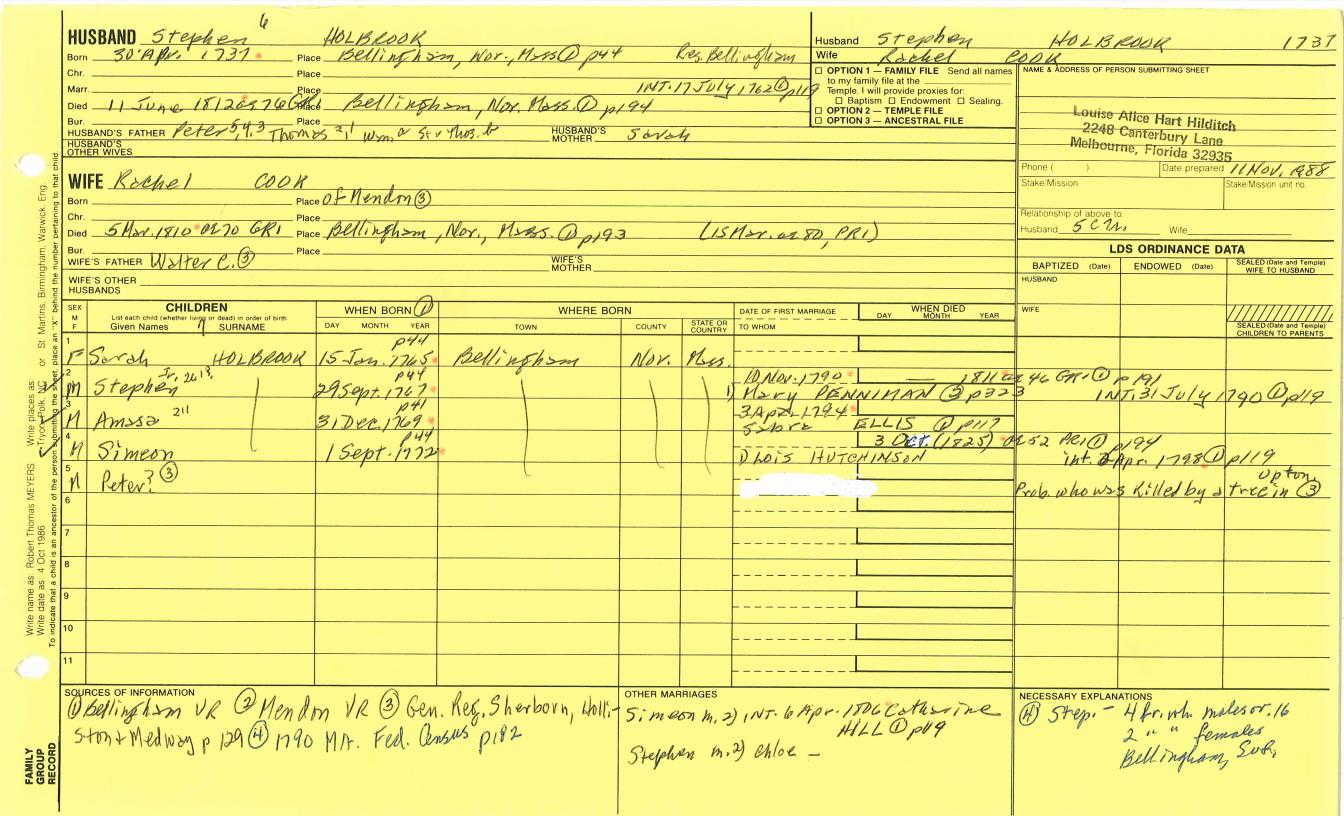 HUSBAND Stephen 6 HOLBROOK
Born 30 Apr. 1737 Place Bellingham, Nor., Mass ① p44 Res. Bellingham
Chr. Place
Marr. Place INT. 17 July 1762 ① p119
Died 11 June 1812 ae 76 GR1 Place Bellingham, Nor. Mass. ① p194
Bur. Place
HUSBAND'S FATHER Peter 5,4,3 Thomas 2,1 Wm. or St or Thos. b HUSBAND'S MOTHER Sarah
HUSBAND'S OTHER WIVES
WIFE Rachel COOK
Born Place of Mendon ③
Chr. Place
Died 5 Mar. 1810 ae 70 GR1 Place Bellingham, Nor., Mass. ① p193 (15 Mar. ae 80, PR1)
Bur. Place
WIFE'S FATHER Walter C. ③ WIFE'S MOTHER
WIFE'S OTHER HUSBANDS
Husband Stephen HOLBROOK 1737
Wife Rachel COOK
☐ OPTION 1 — FAMILY FILE Send all names
to my family file at the
Temple. I will provide proxies for:
☐ Baptism ☐ Endowment ☐ Sealing.
☐ OPTION 2 — TEMPLE FILE
☐ OPTION 3 — ANCESTRAL FILE
NAME & ADDRESS OF PERSON SUBMITTING SHEET
Louise Alice Hart Hilditch
2248 Canterbury Lane
Melbourne, Florida 32935
Phone ( ) Date prepared 11 Nov. 1988
Stake/Mission Stake/Mission unit no.
Relationship of above to:
Husband 5C7r. Wife
LDS ORDINANCE DATA
BAPTIZED (Date) ENDOWED (Date) SEALED (Date and Temple) WIFE TO HUSBAND
HUSBAND
WIFE
SEALED (Date and Temple) CHILDREN TO PARENTS
SEX M F CHILDREN WHEN BORN ① WHERE BORN DATE OF FIRST MARRIAGE WHEN DIED
List each child (whether living or dead) in order of birth
Given Names 7 SURNAME DAY MONTH YEAR TOWN COUNTY STATE OR COUNTRY TO WHOM DAY MONTH YEAR
1 F Sarah HOLBROOK 15 Jan. 1765 p44 Bellingham Nor. Mass.
2 M Stephen Jr. 2613. 29 Sept. 1767 p44 10 Nov. 1790 — 1811 ae 46 GR1 ① p191
1) Mary PENNIMAN ② p323 INT. 31 July 1790 ① p119
3 M Amasa 211 31 Dec. 1769 p41 3 Apr. 1794
Sabra ELLIS ① p117
4 M Simeon 1 Sept. 1772 p44 3 Oct. (1825) ae 52 PR1 ① p194
1) Lois HUTCHINSON int. 8 Apr. 1798 ① p119
5 M Peter? ③ Prob. who was killed by a tree in Upton ③
6
7
8
9
10
11
SOURCES OF INFORMATION
① Bellingham VR ② Mendon VR ③ Gen. Reg. Sherborn, Holli-
ston & Medway p 129 ④ 1790 MA. Fed. Census p182
OTHER MARRIAGES
Simeon m. 2) INT. 6 Apr. 1806 Catharine
HILL ① p49
Stephen m. 2) Chloe —
NECESSARY EXPLANATIONS
④ Step. - 4 fr. wh. males or. 16
2 " " females
Bellingham, Suf.
Write name as: Robert Thomas MEYERS Write places as: Tryon, Polk, NC or St Martins, Birmingham, Warwick, Eng.
Write date as: 4 Oct 1986
To indicate that a child is an ancestor of the person submitting the sheet, place an "X" behind the number pertaining to that child
FAMILY GROUP RECORD